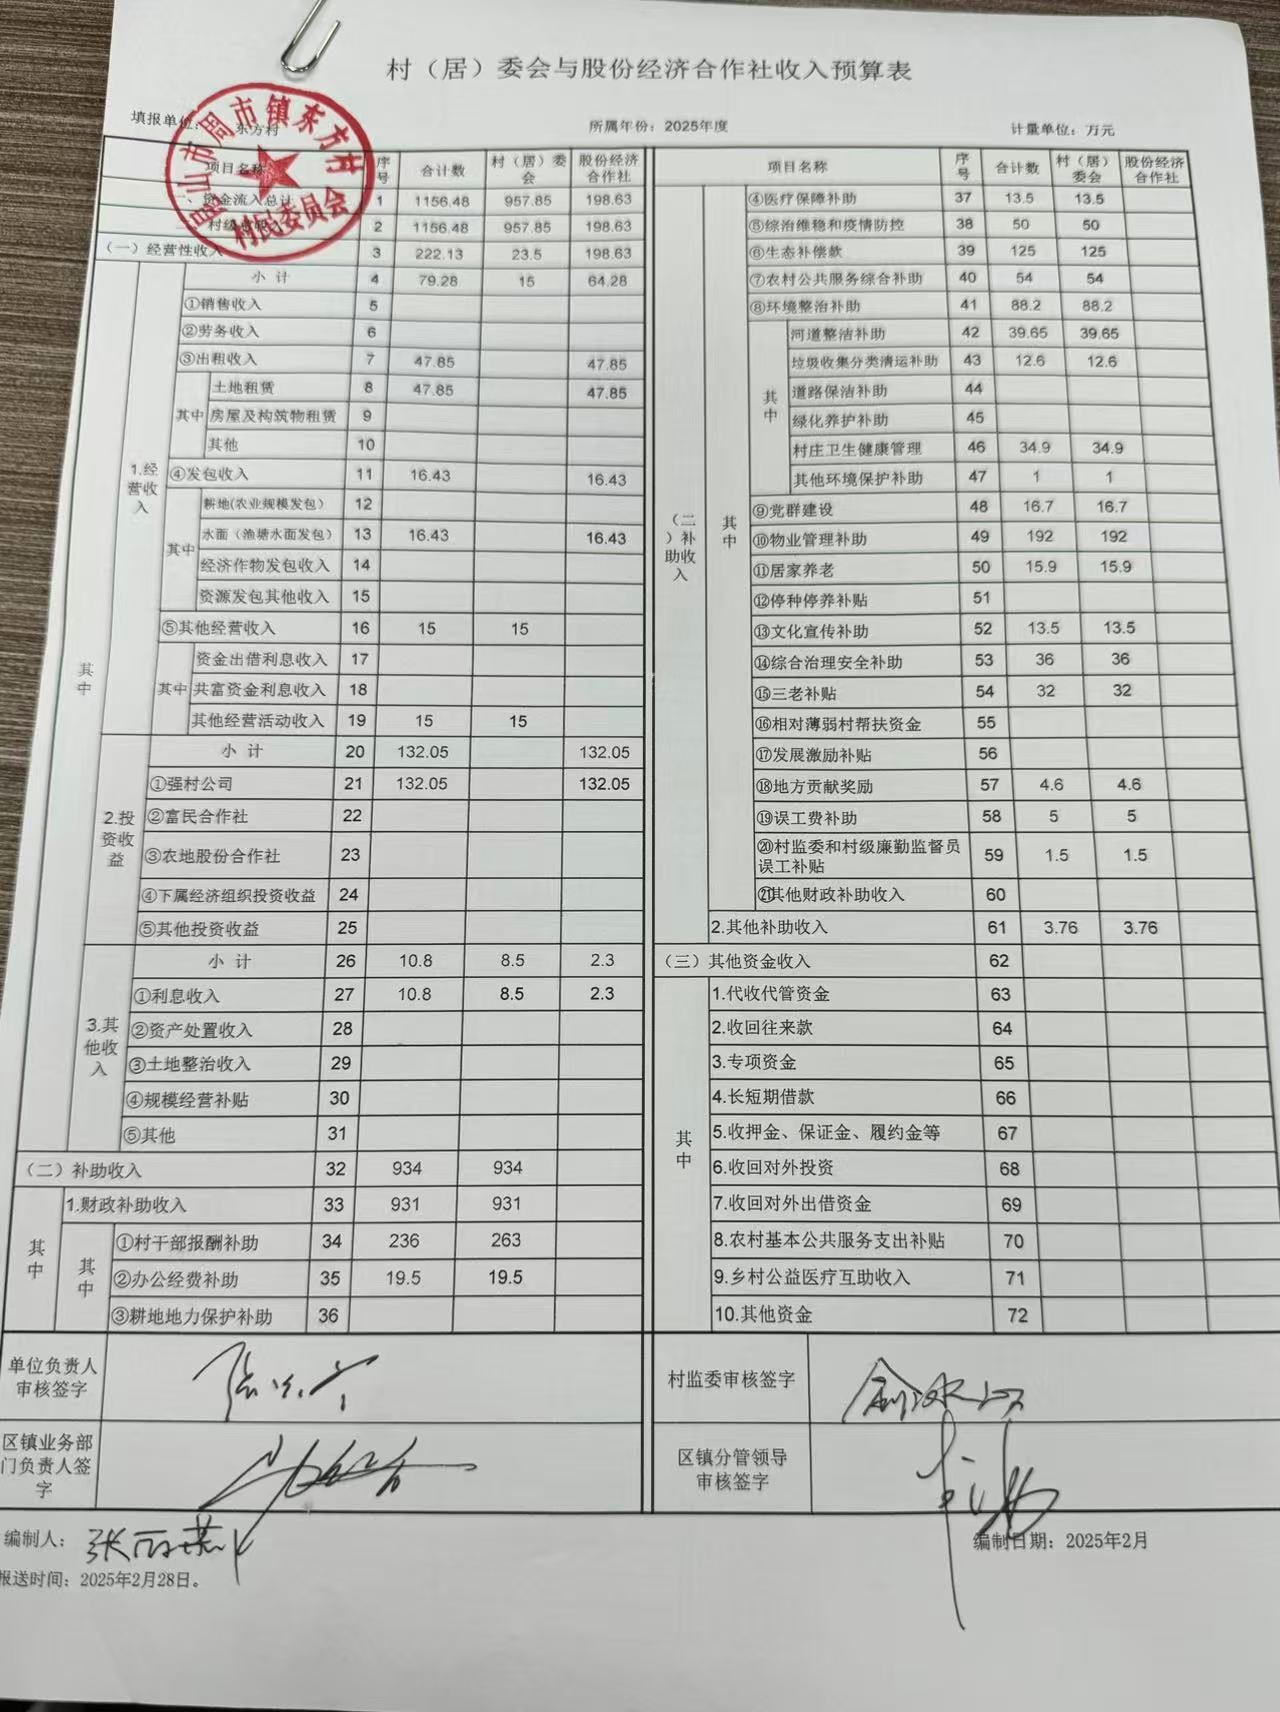 村（居）委会与股份经济合作社收入预算表
填报单位：东方村 所属年份：2025年度 计量单位：万元
昆山市周市镇东方村
村民委员会
项目名称 序号 合计数 村（居）委会 股份经济合作社
一、资金流入总计 1 1156.48 957.85 198.63
村级总收入 2 1156.48 957.85 198.63
（一）经营性收入 3 222.13 23.5 198.63
其中
1.经营收入
小 计 4 79.28 15 64.28
①销售收入 5
②劳务收入 6
③出租收入 7 47.85 47.85
其中
土地租赁 8 47.85 47.85
房屋及构筑物租赁 9
其他 10
④发包收入 11 16.43 16.43
其中
耕地(农业规模发包) 12
水面（渔塘水面发包） 13 16.43 16.43
经济作物发包收入 14
资源发包其他收入 15
⑤其他经营收入 16 15 15
其中
资金出借利息收入 17
共富资金利息收入 18
其他经营活动收入 19 15 15
2.投资收益
小 计 20 132.05 132.05
①强村公司 21 132.05 132.05
②富民合作社 22
③农地股份合作社 23
④下属经济组织投资收益 24
⑤其他投资收益 25
3.其他收入
小 计 26 10.8 8.5 2.3
①利息收入 27 10.8 8.5 2.3
②资产处置收入 28
③土地整治收入 29
④规模经营补贴 30
⑤其他 31
（二）补助收入 32 934 934
其中
1.财政补助收入 33 931 931
其中
①村干部报酬补助 34 236 263
②办公经费补助 35 19.5 19.5
③耕地地力保护补助 36
项目名称 序号 合计数 村（居）委会 股份经济合作社
（二）补助收入
其中
④医疗保障补助 37 13.5 13.5
⑤综治维稳和疫情防控 38 50 50
⑥生态补偿款 39 125 125
⑦农村公共服务综合补助 40 54 54
⑧环境整治补助 41 88.2 88.2
其中
河道整洁补助 42 39.65 39.65
垃圾收集分类清运补助 43 12.6 12.6
道路保洁补助 44
绿化养护补助 45
村庄卫生健康管理 46 34.9 34.9
其他环境保护补助 47 1 1
⑨党群建设 48 16.7 16.7
⑩物业管理补助 49 192 192
⑪居家养老 50 15.9 15.9
⑫停种停养补贴 51
⑬文化宣传补助 52 13.5 13.5
⑭综合治理安全补助 53 36 36
⑮三老补贴 54 32 32
⑯相对薄弱村帮扶资金 55
⑰发展激励补贴 56
⑱地方贡献奖励 57 4.6 4.6
⑲误工费补助 58 5 5
⑳村监委和村级廉勤监督员误工补贴 59 1.5 1.5
㉑其他财政补助收入 60
2.其他补助收入 61 3.76 3.76
（三）其他资金收入 62
其中
1.代收代管资金 63
2.收回往来款 64
3.专项资金 65
4.长短期借款 66
5.收押金、保证金、履约金等 67
6.收回对外投资 68
7.收回对外出借资金 69
8.农村基本公共服务支出补贴 70
9.乡村公益医疗互助收入 71
10.其他资金 72
单位负责人审核签字
村监委审核签字
区镇业务部门负责人签字
区镇分管领导审核签字
编制人： 编制日期：2025年2月
报送时间：2025年2月28日。